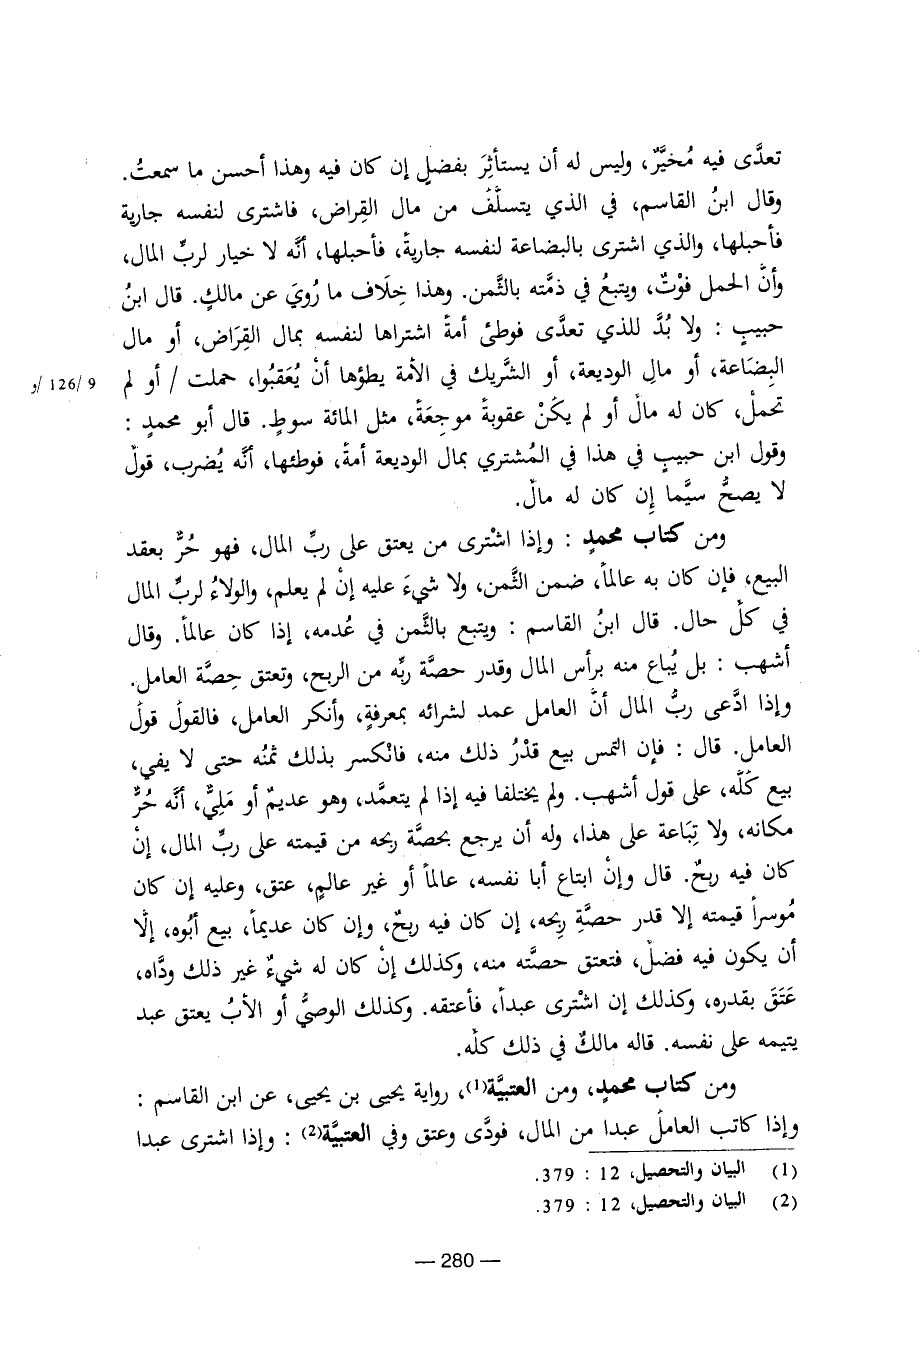 تعدَّى فيه مُخيَّرٌ، وليس له أن يستأثِرَ بفضلٍ إن كان فيه وهذا أحسن ما سمعتُ.
وقال ابنُ القاسم، في الذي يتسلَّفُ من مال القِراض، فاشترى لنفسه جارية
فأحبلها، والذي اشترى بالبضاعة لنفسه جاريةً، فأحبلها، أنَّه لا خيار لربِّ المال،
وأنَّ الحمل فوْتٌ، ويتبعُ في ذمَّته بالثَّمن. وهذا خِلَاف ما رُويَ عن مالكٍ. قال ابنُ
حبيبٍ : ولا بُدَّ للذي تعدَّى فوطئ أمةً اشتراها لنفسه بمال القِرَاض، أو مال
البِضَاعة، أو مالِ الوديعة، أو الشَّريك في الأمة يطؤها أنْ يُعَقبُوا، حملت / أو لم
9 /126 /و
تحملْ، كان له مالٌ أو لم يكُنْ عقوبةً موجِعَةً، مثل المائة سوطٍ. قال أبو محمدٍ :
وقول ابن حبيبٍ في هذا في المُشتري بمال الوديعة أمةً، فوطئها، أنَّه يُضرب، قولٌ
لا يصحُّ سيَّما إِن كان له مالٌ.
ومن كتاب محمدٍ : وإذا اشْترى من يعتق على ربِّ المال، فهو حُرٌّ بعقد
البيع، فإن كان به عالماً، ضمن الثَّمن، ولا شيءَ عليه إنْ لم يعلم، والولاءُ لربِّ المال
في كلِّ حال. قال ابنُ القاسم : ويتبع بالثَّمن في عُدمه، إذا كان عالماً. وقال
أشهب : بل يُباع منه برأس المال وقدر حصَّة ربِّه من الربح، وتعتق حِصَّة العامل.
وإذا ادَّعى ربُّ المال أنَّ العامل عمد لشرائه بمعرفةٍ، وأنكر العامل، فالقولُ قولُ
العامل. قال : فإن التمس بيع قدْرُ ذلك منه، فانْكسر بذلك ثمنُه حتى لا يفي،
بيع كُلُّه، على قول أشهب. ولم يختلفا فيه إذا لم يتعمَّد، وهو عديمٌ أو مَلِيٌّ، أنَّه حُرٌّ
مكانه، ولا تِبَاعة على هذا، وله أن يرجع بحصَّة ربحه من قيمته على ربِّ المال، إنْ
كان فيه ربحٌ. قال وإنْ ابتاع أبا نفسه، عالماً أو غير عالمٍ، عتق، وعليه إن كان
مُوسراً قيمته إلا قدر حصَّةِ رِبحه، إن كان فيه ربحٌ، وإن كان عديماً، بيع أبُوه، إلَّا
أن يكون فيه فضلٌ، فتعتق حصَّته منه، وكذلك إنْ كان له شيءٌ غير ذلك ودَّاه،
عَتَقَ بقدره، وكذلك إن اشْترى عبداً، فأعتقه. وكذلك الوصيُّ أو الأبُ يعتق عبد
يتيمه على نفسه. قاله مالكٌ في ذلك كلِّه.
ومن كتاب محمدٍ، ومن العتبيَّة(1)، رواية يحيى بن يحيى، عن ابن القاسم :
وإذا كاتب العاملُ عبدا من المال، فودَّى وعتق وفي العتبيَّة(2) : وإذا اشترى عبدا
(1) البيان والتحصيل، 12 : 379.
(2) البيان والتحصيل، 12 : 379.
— 280 —